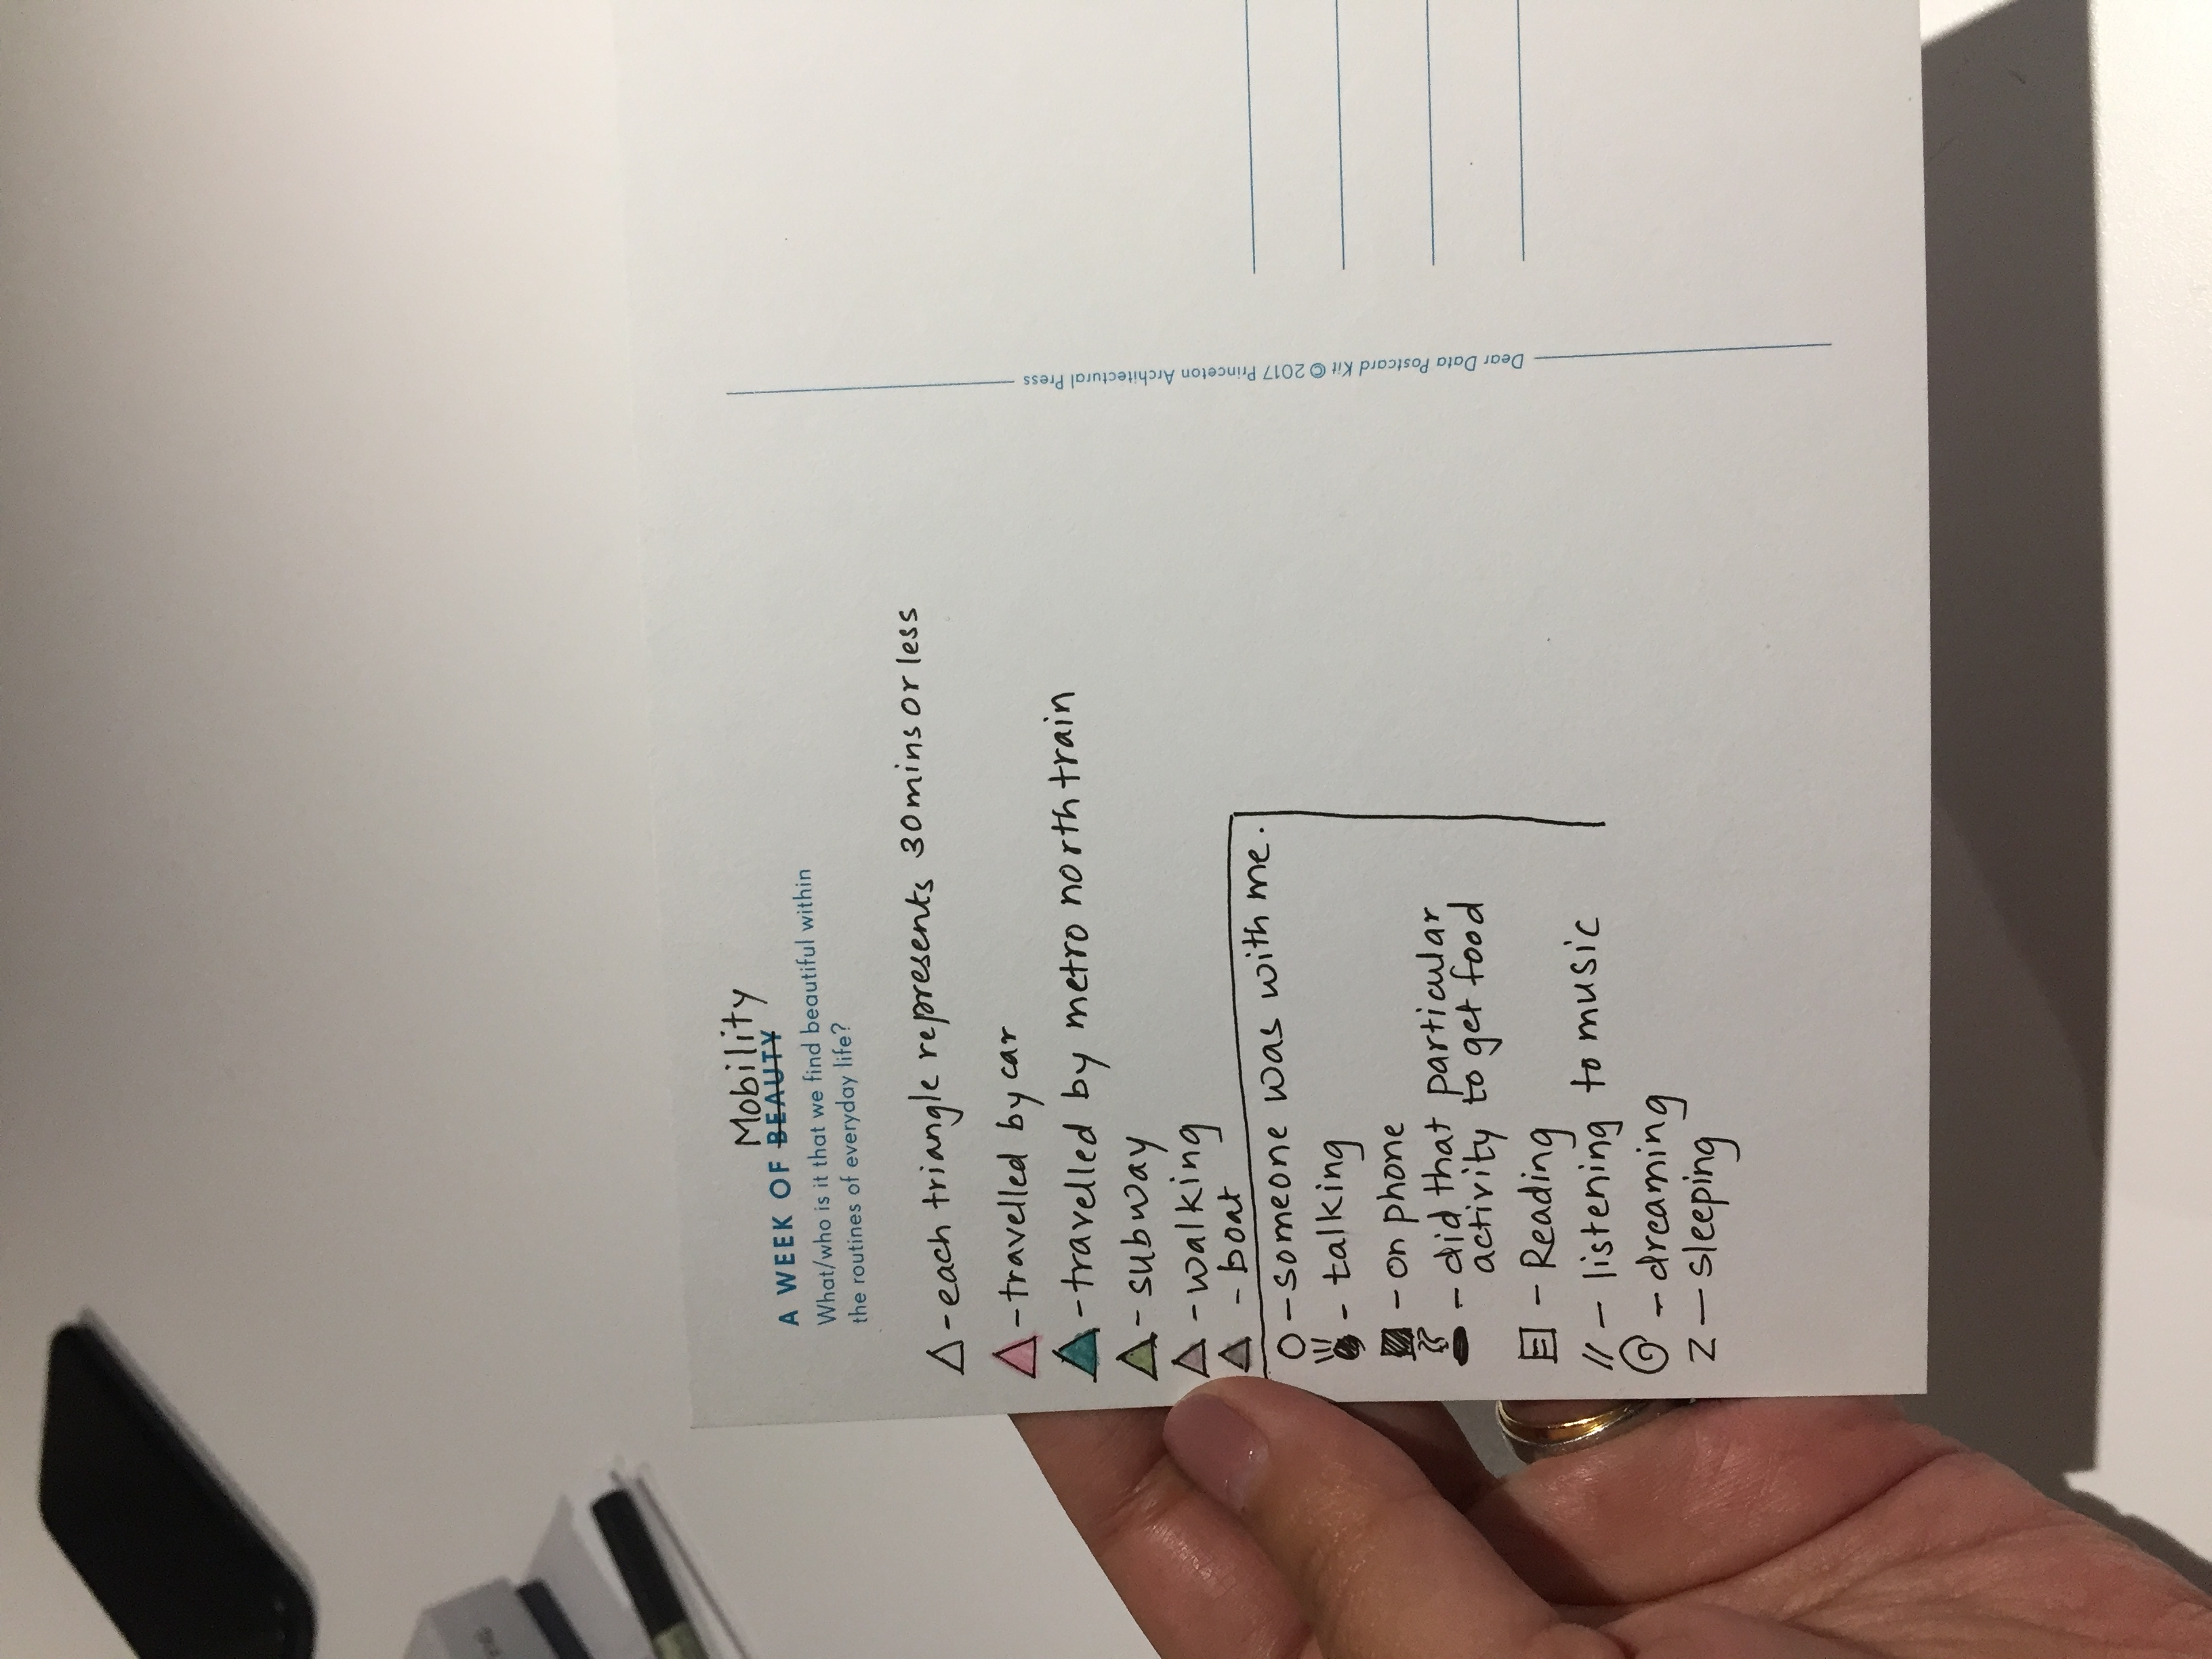 Mobility
A WEEK OF BEAUTY
What/who is it that we find beautiful within
the routines of everyday life?
△ - each triangle represents 30mins or less
△ - travelled by car
△ - travelled by metro north train
△ - subway
△ - walking
△ - boat
O - someone was with me.
- talking
- on phone
- did that particular
activity to get food
- Reading
// - listening to music
- dreaming
Z - sleeping
Dear Data Postcard Kit © 2017 Princeton Architectural Press